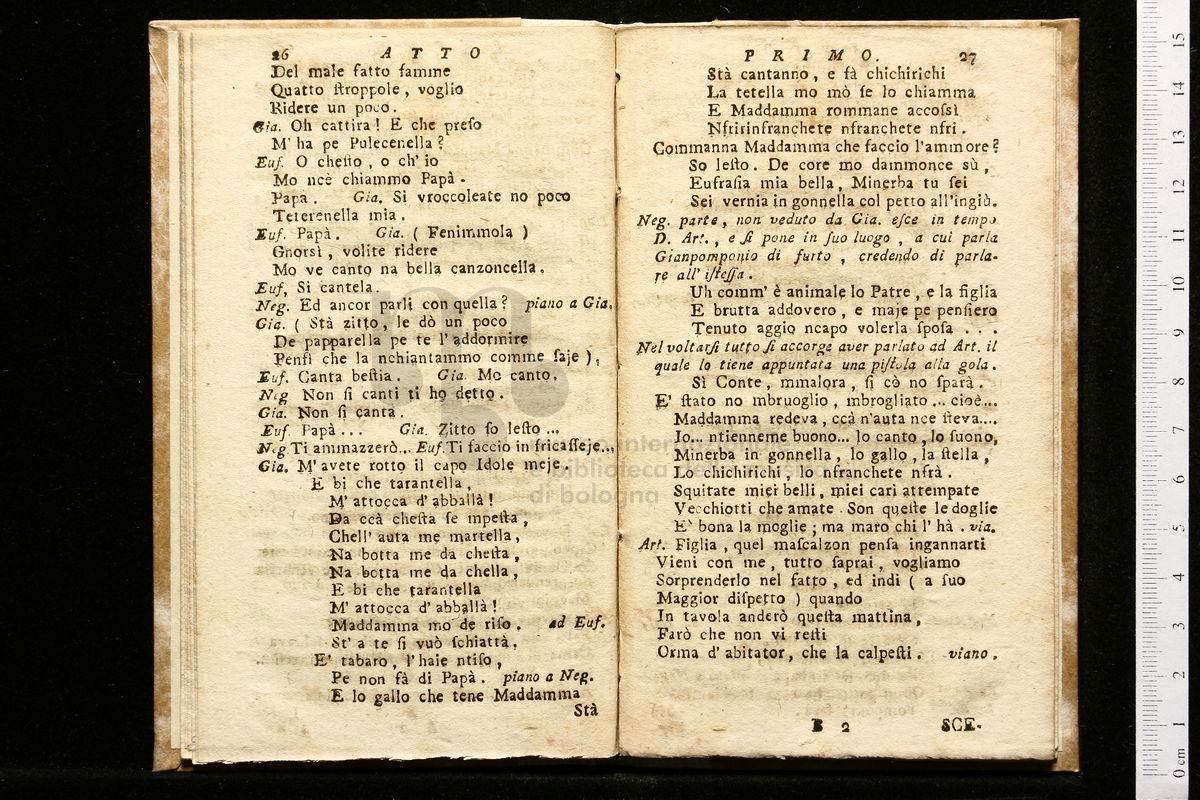 26 ATTO
Del male fatto famme
Quatto ſtroppole, voglio
Ridere un poco.
Gia. Oh cattira! E che preſo
M' ha pe Pulecenella?
Euf. O cheſto, o ch' io
Mo ncè chiammo Papà.
Papa. Gia. Si vroccoleate no poco
Teterenella mia.
Euf. Papà. Gia. ( Fenimmola )
Gnorsì, volite ridere
Mo ve canto na bella canzoncella.
Euf, Si cantela.
Neg. Ed ancor parli con quella? piano a Gia.
Gia. ( Stà zitto, le dò un poco
De papparella pe te l' addormire
Penſi che la nchiantammo comme ſaje ),
Euf. Canta beſtia. Gia. Mo canto.
Neg Non ſi canti ti ho detto.
Gia. Non ſi canta.
Euf. Papà... Gia. Zitto ſo leſto...
Neg. Ti ammazzerò... Euf. Ti faccio in fricaſſeje...
Gia. M' avete rotto il capo Idole meje.
E bi che tarantella,
M' attocca d' abballà!
Da ccà cheſta ſe mpeſta,
Chell' auta me martella,
Na botta me da cheſta,
Na botta me da chella,
E bi che tarantella
M' attocca d' abballà!
Maddamma mo de riſo, ad Euf.
St' a te ſi vuò ſchiattà,
E' tabaro, l' haie ntiſo,
Pe non fà di Papà. piano a Neg.
E lo gallo che tene Maddamma
Stà
PRIMO. 27
Stà cantanno, e fà chichirichi
La tetella mo mò ſe lo chiamma
E Maddamma rommane accoſsì
Nfririnfranchete nfranchete nfri.
Commanna Maddamma che faccio l'ammore?
So leſto. De core mo dammonce sù,
Eufraſia mia bella, Minerba tu ſei
Sei vernia in gonnella col petto all'ingiù.
Neg. parte, non veduto da Gia. eſce in tempo
D. Art., e ſi pone in ſuo luogo, a cui parla
Gianpomponio di furto, credendo di parla-
re all' iſteſſa.
Uh comm' è animale lo Patre, e la figlia
E brutta addovero, e maje pe penſiero
Tenuto aggio ncapo volerla ſpoſa . . .
Nel voltarſi tutto ſi accorge aver parlato ad Art. il
quale lo tiene appuntata una piſtola alla gola.
Sì Conte, mmalora, ſi cò no ſparà.
E' ſtato no mbruoglio, mbrogliato... cioè...
Maddamma redeva, ccà n'auta nce ſteva....
Io... ntienneme buono... lo canto, lo ſuono,
Minerba in gonnella, lo gallo, la ſtella,
Lo chichirichi, lo nfranchete nfrà.
Squitate miei belli, miei cari attempate
Vecchiotti che amate. Son queſte le doglie
E' bona la moglie; ma maro chi l' hà. via.
Art. Figlia, quel maſcalzon penſa ingannarti
Vieni con me, tutto ſaprai, vogliamo
Sorprenderlo nel fatto, ed indi ( a ſuo
Maggior diſpetto ) quando
In tavola anderò queſta mattina,
Farò che non vi reſti
Orma d' abitator, che la calpeſti. viano.
B 2 SCE-
biblioteca
di bologna
0 cm 1 2 3 4 5 6 7 8 9 10 11 12 13 14 15